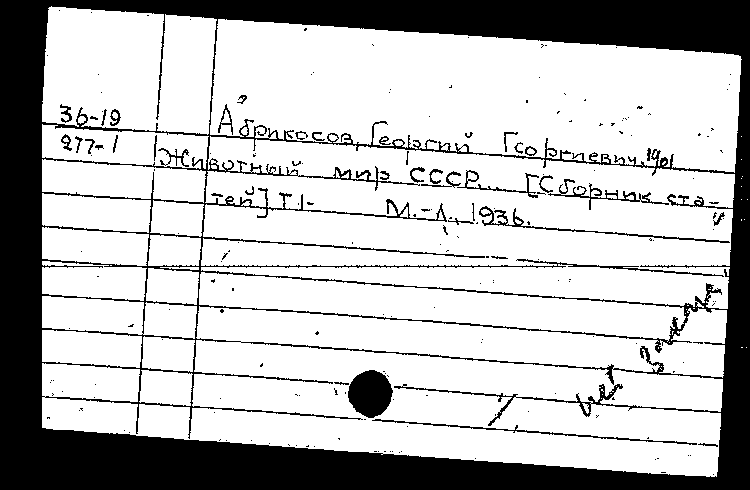 36-19
277-1
Абрикосов, Георгий Георгиевич. 1901
Животный мир СССР... [Сборник ста-
тей] Т 1- М.-Л., 1936.
нет